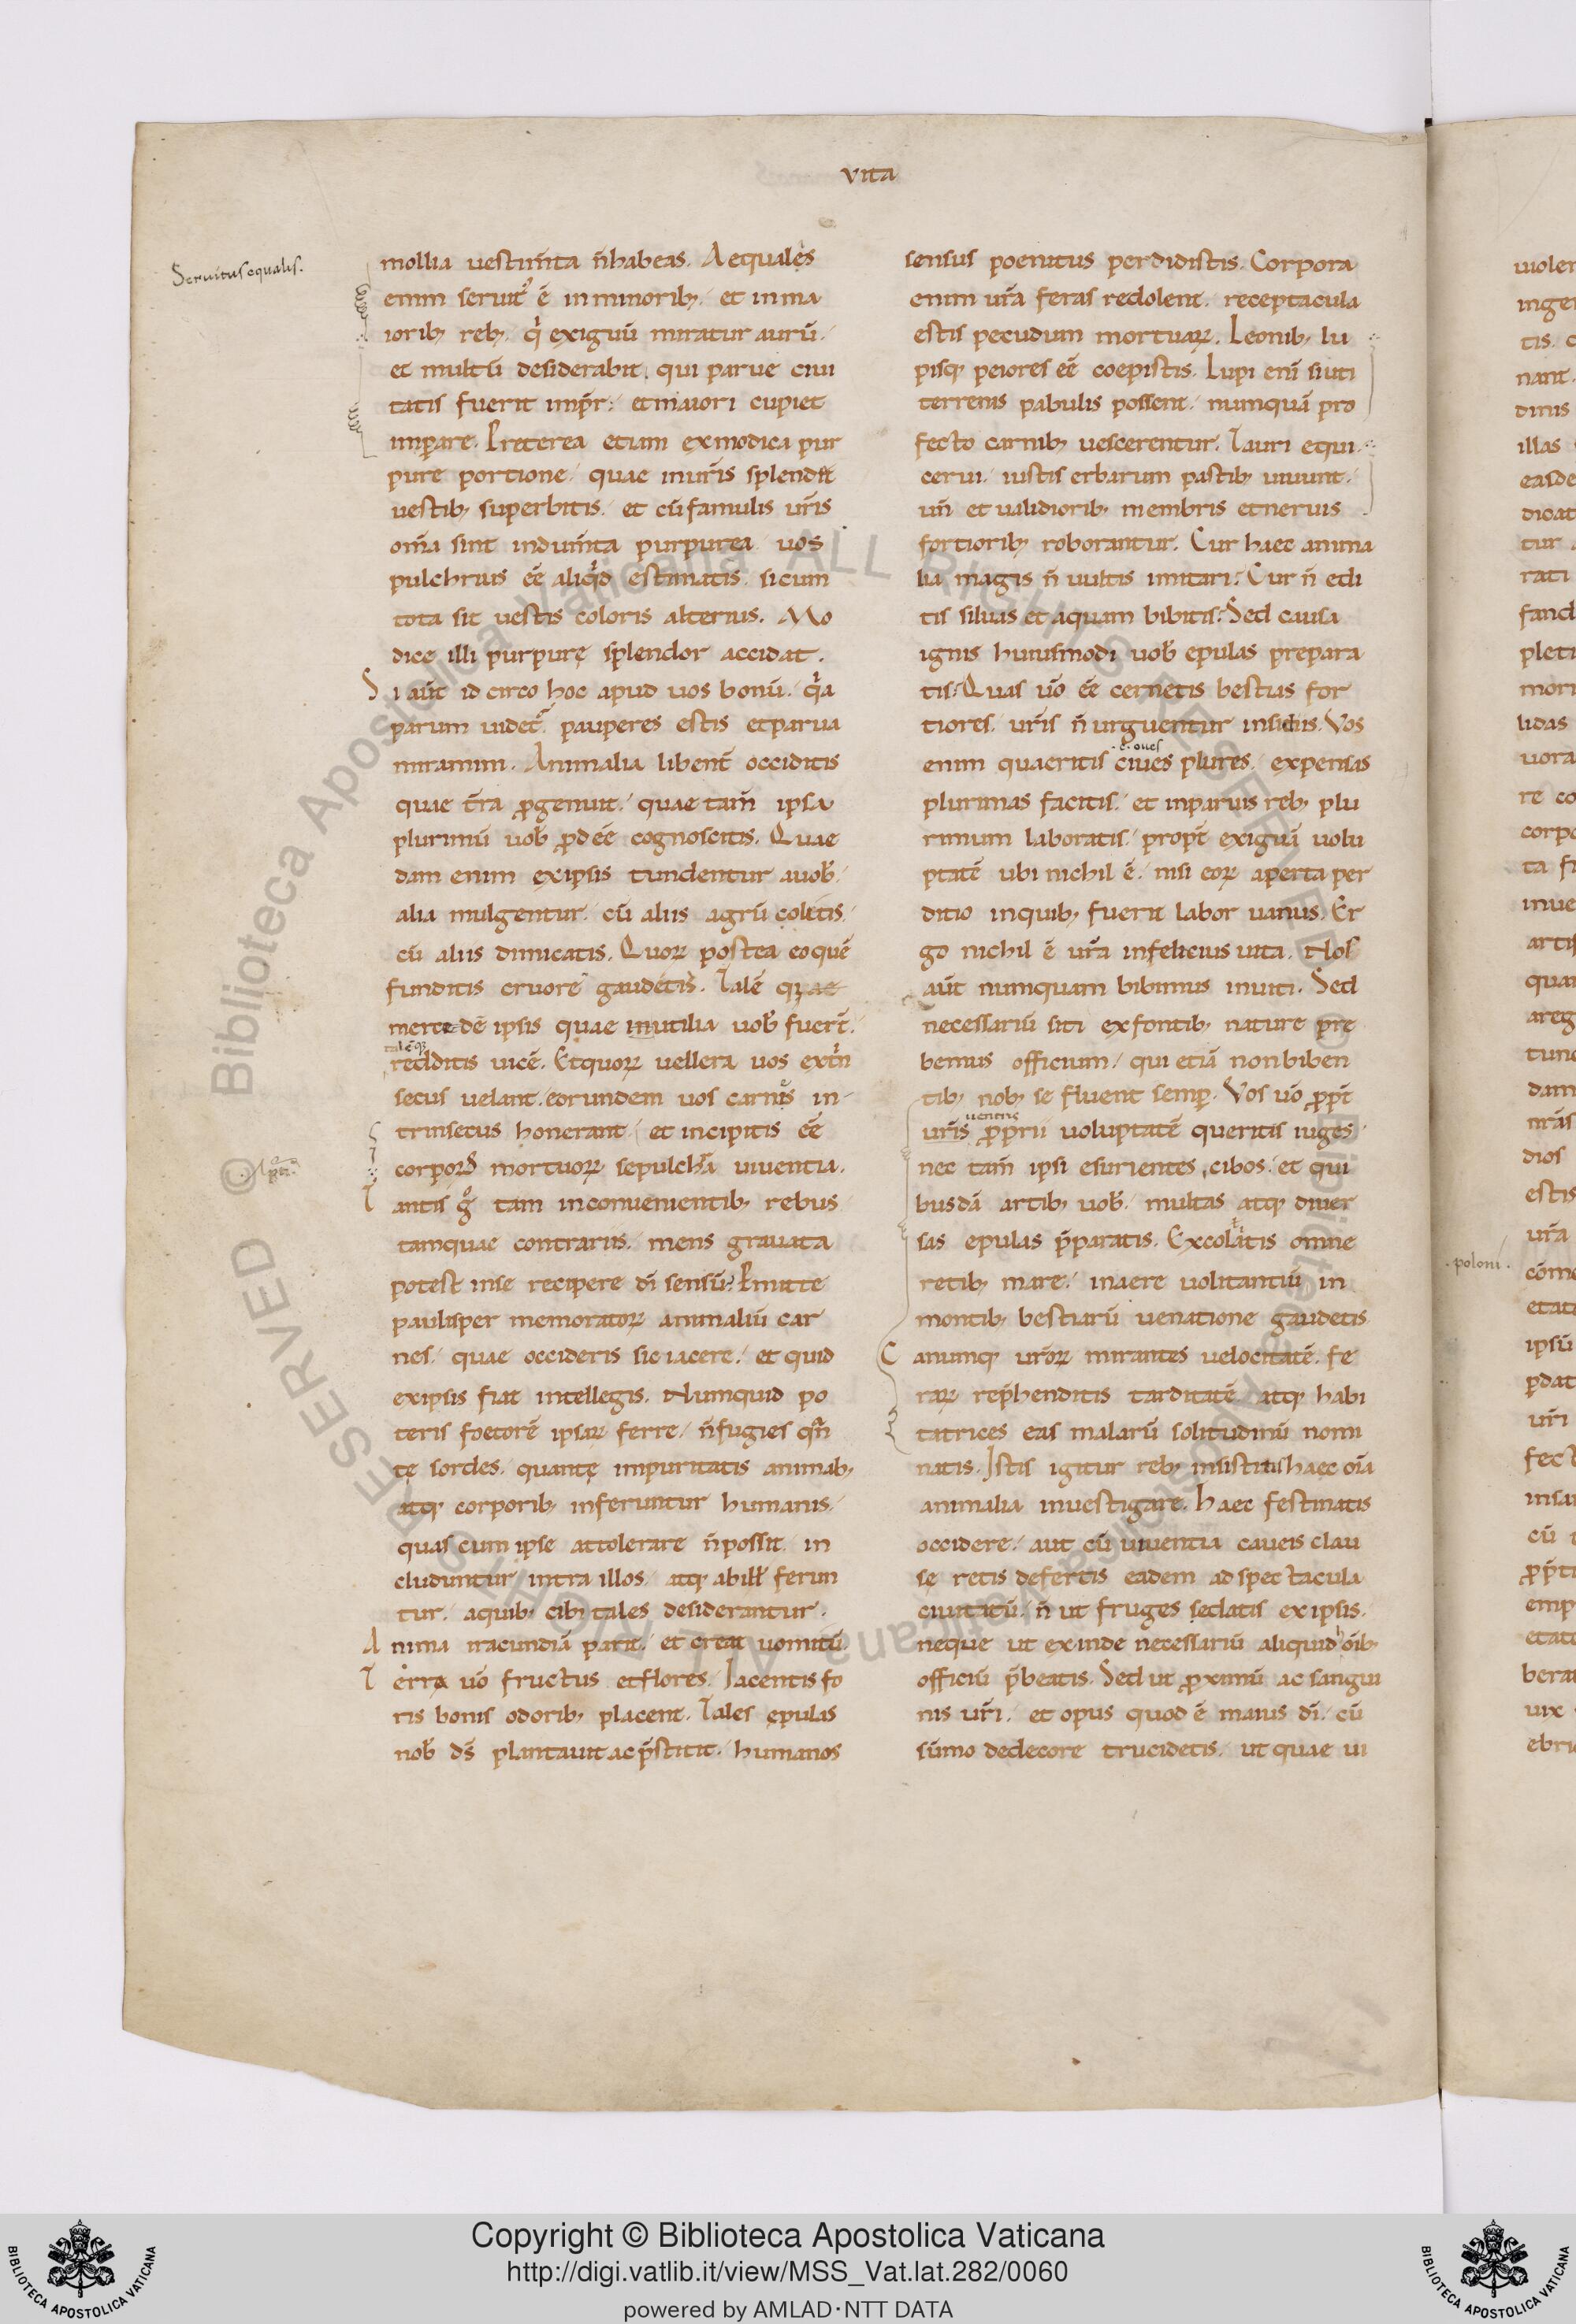 vita
Seruitus equalis.
mollia uestim̅ta n̅ habeas. Aequales
enim seruit᷒ e̅ in minorib; et in ma
iorib; reb; qͥ exiguu̅ miratur auru̅.
et multu̅ desiderabit. qui parue ciui
tatis fuerit imp̅r. et maiori cupiet
imperare. Preterea etiam ex modica pur
pure portione. quae in ur̅is splendet
uestib; superbitis. et cu̅ famulis ur̅is
om̅a sint indum̅ta purpurea. uos
pulchrius ee̅ aliqͥd estimatis. si cum
tota sit uestis coloris alterius. Mo
dice illi purpurę splendor accidat.
Si aut̅ id circo hoc apud uos bonu̅. qͥa
parum uidet᷒. pauperes estis et parua
miramini. Animalia libent̅ occiditis
quae t̅ra ꝓgenuit. quae tam̅ ipsa
plurimu̅ uob̅ ꝓdee̅ cognoscitis. Quae
dam enim ex ipsis tundentur a uob̅.
alia mulgentur. cu̅ aliis agru̅ colitis.
cu̅ aliis dimicatis. Quoꝝ postea eoque̅
funditis cruore̅ gaudetis. Tale̅ quae
mercede̅ ipsis quae inutilia uob̅ fuer̅t.
redditis uice̅. Et quoꝝ uellera uos extͥn
secus uelant. eorundem uos carnis in
trinsecus honerant. et incipitis ee̅
corpoꝝ mortuoꝝ sepulchra uiuentia.
Tantis gͦ tam inconuenientib; rebus
tamquae contrariis. mens grauata
potest in se recipere di̅ sensu̅? Emitte
paulisper memoratoꝝ animaliu̅ car
nes. quae occideris sic iacere. et quid
ex ipsis fiat intellegis. Numquid po
teris foetore̅ ipsaꝝ ferre. n̅ fugies qn̅
tę sordes. quantę impuritatis animab;
atq; corporib; inferuntur humanis.
quas cum ipse attolerare n̅ possit. in
cluduntur intra illos. atq; ab ill̅ ferun
tur. a quib; cibi tales desiderantur.
Anima iracundia̅ parit. et creat uomitu̅.
Terra uo̅ fructus et flores. Iacentis fo
ris bonis odorib; placent. Tales epulas
nob̅ ds̅ plantauit ac p̅stitit. humanos
sensus poenitus perdidistis. Corpora
enim ur̅a feras redolent. receptacula
estis pecudum mortuaꝝ. Leonib; lu
pisq; peiores ee̅ coepistis. Lupi eni̅ si uti
terrenis pabulis possent. numqua̅ pro
fecto carnib; uescerentur. Tauri equi
cerui. iustis erbarum pastib; uiuunt.
un̅ et ualidiorib; membris et neruis
fortiorib; roborantur. Cur haec anima
lia magis n̅ uultis imitari? Cur n̅ edi
tis siluas et aquam bibitis? Sed causa
ignis huiusmodi uob̅ epulas prepara
tis. Quas uo̅ ee̅ cernetis bestias for
tiores. ur̅is n̅ urguentur insidiis. Vos
.e. oues
enim quaeritis ciues plures. expensas
plurimas facitis. et in paruis reb; plu
rimum laboratis. propt̅ exigua̅ uolu
ptate̅ ubi nichil e̅. nisi eoꝝ aperta per
ditio in quib; fuerit labor uanus. Er
go nichil e̅ ur̅a infelicius uita. Nos
aut̅ numquam bibimus inuiti. Sed
necessariu̅ siti ex fontib; nature pre
bemus officium. qui etia̅ non biben
tib; nob; se fluent semp. Vos uo̅ ꝓpt̅
uentris
ur̅is ꝓprii uoluptate̅ queritis iuges
nec tam̅ ipsi esurientes cibos. et qui
busda̅ artib; uob̅. multas atq; diuer
sas epulas p̅paratis. Excolatis omne
retib; mare. in aere uolitantiu̅ in
montib; bestiaru̅ uenatione gaudetis.
Canumq; ur̅oꝝ mirantes uelocitate̅. fe
raꝝ rep̅henditis tarditate̅ atq; habi
tatrices eas malaru̅ solitudinu̅ nomi
natis. Istis igitur reb; insistitis haec oi̅a
animalia inuestigare. Haec festinatis
occidere. aut cu̅ uiuentia caueis clau
se retis defertis eadem ad spectacula
ciuitatu̅. n̅ ut fruges sedatis ex ipsis.
neque ut exinde necessariu̅ aliquid oi̅b;
officiu̅ p̅beatis. Sed ut ꝓximu̅ ac sangui
nis ur̅i. et opus quod e̅ maius di̅. cu̅
su̅mo dedecore trucidetis. ut quae ui
.poloni.
Copyright © Biblioteca Apostolica Vaticana
http://digi.vatlib.it/view/MSS_Vat.lat.282/0060
powered by AMLAD·NTT DATA
BIBLIOTECA APOSTOLICA VATICANA
BIBLIOTECA APOSTOLICA VATICANA